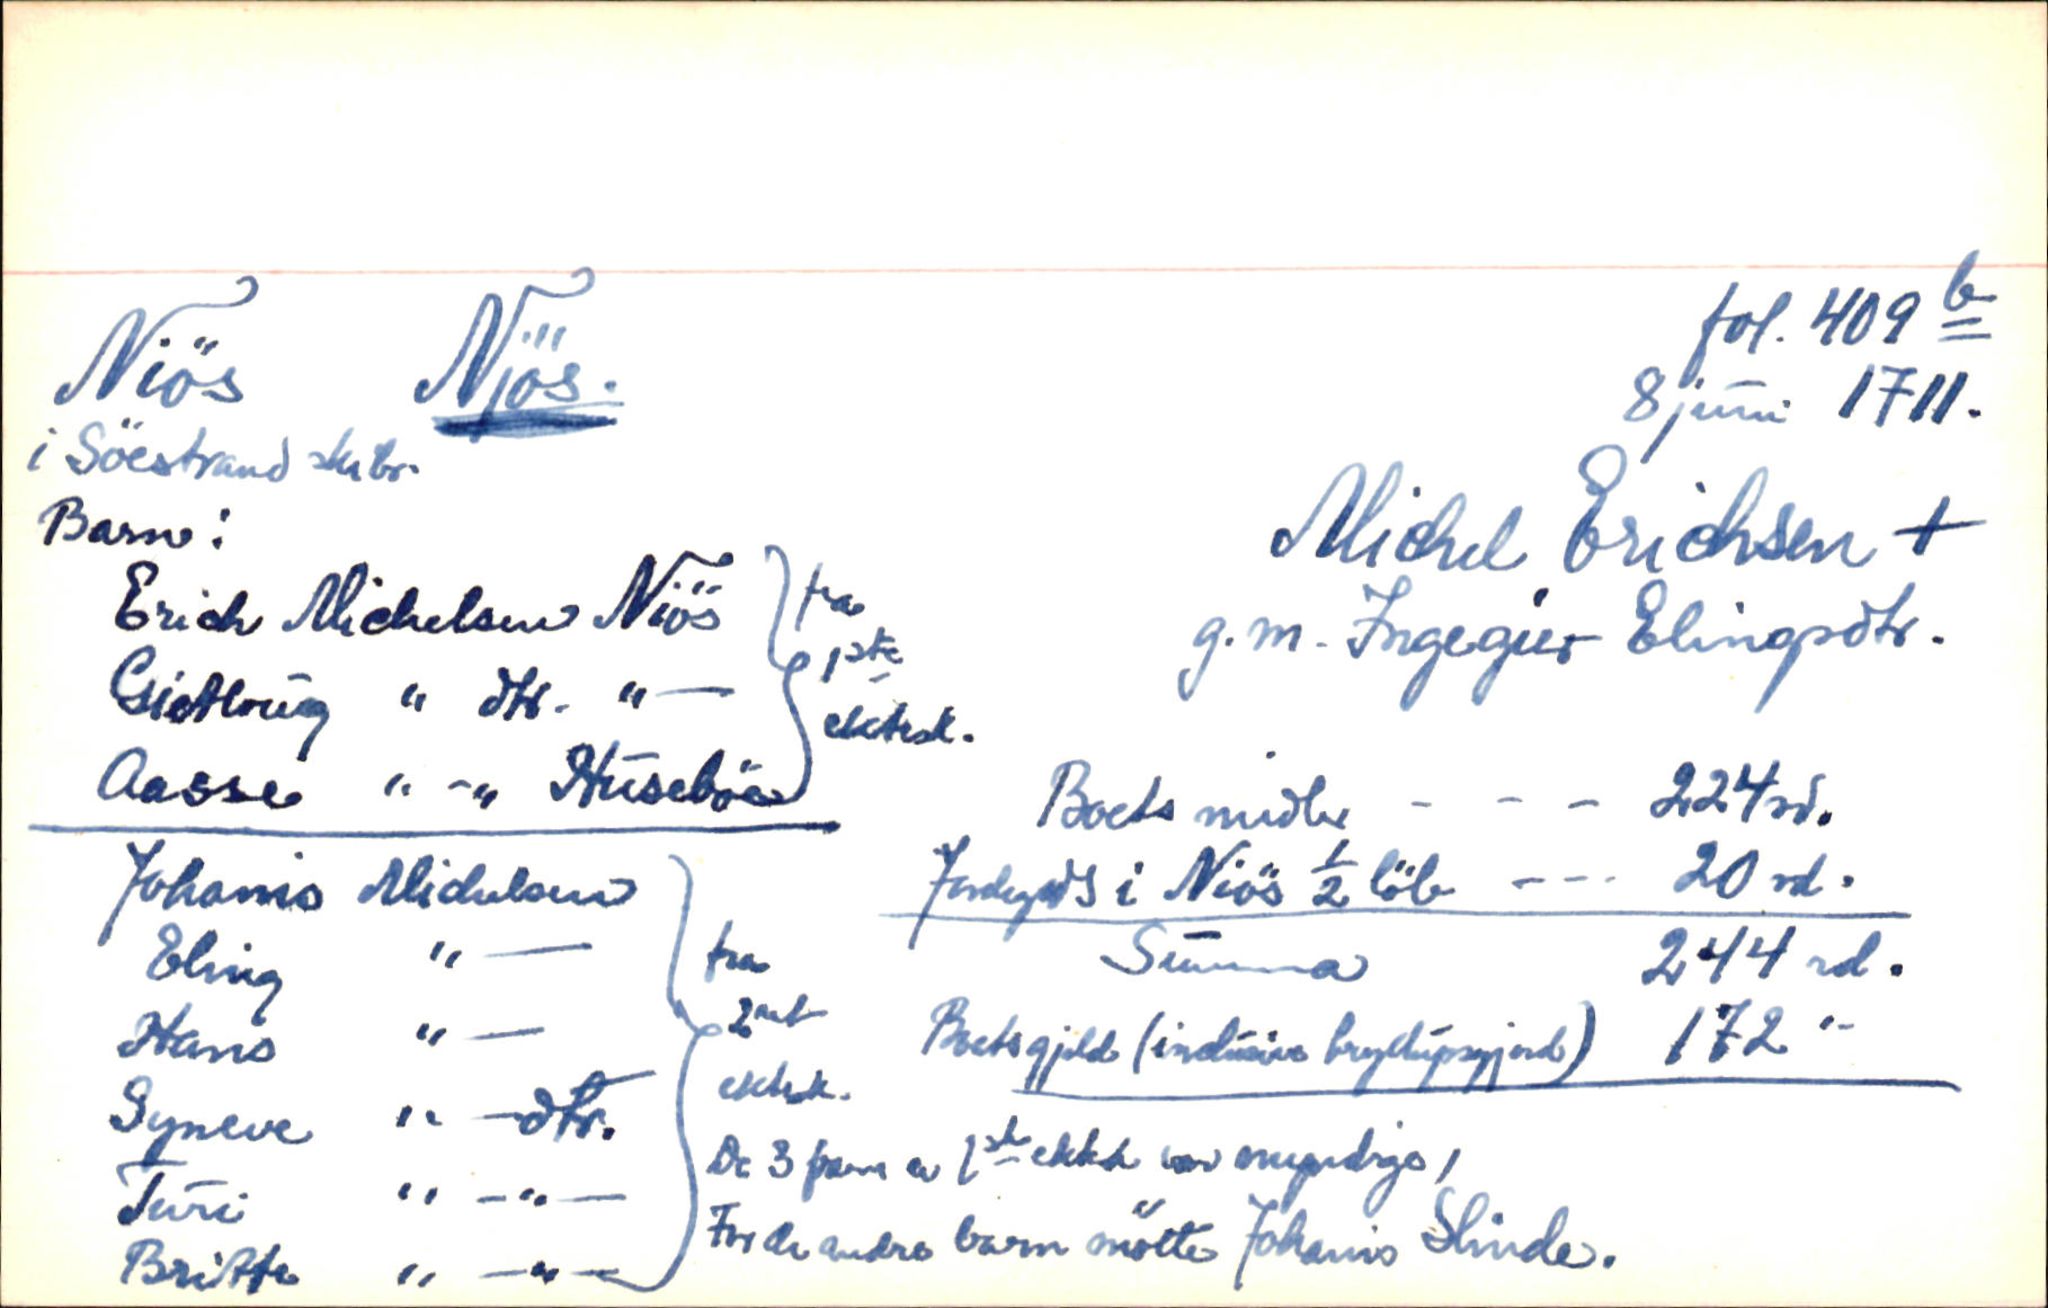 Niös Njös. fol. 409 b
i Söestrand skbr. 8 juni 1711.
Michel Erichsen +
g. m. Ingegier Elingsdtr.
Barn:
Erich Michelsen Niös
Gietloug " dtr. " —
Aasse " - " Huseböe
fra
1ste
ektesk.
Johanis Michelsen
Eling " —
Hans " —
Syneve " — dtr.
Turi " — " —
Britte " — " —
fra
2net
ektesk.
Boets midler - - - 224 rd.
Jordegods i Niös 1/2 löb - - - 20 rd.
Summa 244 rd.
Boets gjeld (inclusive bryllupsgjerd) 172 "
De 3 barn av 1ste ektesk var myndige,
For de andre barn mötte Johanis Slinde.